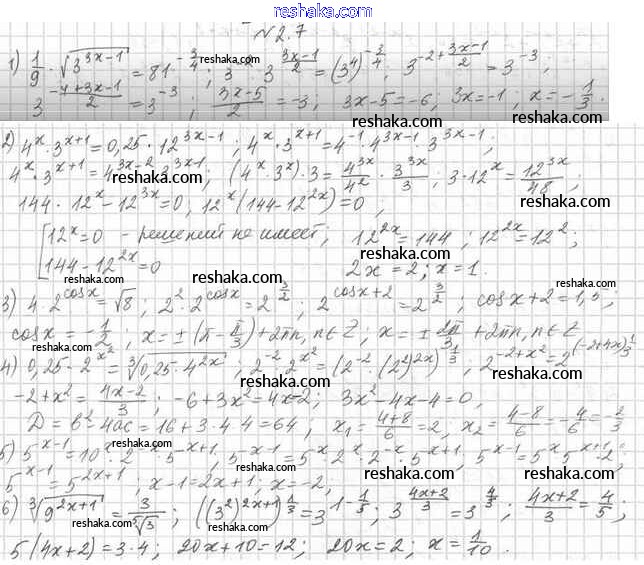 reshak.ru
№2.7
1) 1/9 · √(3^(3x-1)) = 81^(-3/4); 3^(-2) · 3^((3x-1)/2) = (3^4)^(-3/4); 3^(-2+(3x-1)/2) = 3^(-3);
3^((-4+3x-1)/2) = 3^(-3); (3x-5)/2 = -3; 3x-5=-6; 3x=-1; x=-1/3.
2) 4^x · 3^(x+1) = 0,25 · 12^(3x-1); 4^x · 3^(x+1) = 4^(-1) · 4^(3x-1) · 3^(3x-1);
4^x · 3^(x+1) = 4^(3x-2) · 3^(3x-1); (4^x · 3^x) · 3 = 4^(3x)/4^2 · 3^(3x)/3; 3 · 12^x = 12^(3x)/48;
144 · 12^x - 12^(3x) = 0; 12^x (144 - 12^(2x)) = 0;
[12^x = 0 - решений не имеет; 12^(2x) = 144; 12^(2x) = 12^2;
144 - 12^(2x) = 0 2x = 2; x = 1.
3) 4 · 2^(cosx) = √8; 2^2 · 2^(cosx) = 2^(3/2); 2^(cosx+2) = 2^(3/2); cosx+2 = 1,5;
cosx = -1/2; x = ±(π - π/3) + 2πn, n∈Z; x = ± 2π/3 + 2πn, n∈Z.
4) 0,25 · 2^(x^2) = ∛(0,25 · 4^(2x)); 2^(-2) · 2^(x^2) = (2^(-2) · (2^2)^(2x))^(1/3); 2^(-2+x^2) = 2^((-2+4x)1/3)
-2+x^2 = (4x-2)/3; -6+3x^2 = 4x-2; 3x^2-4x-4=0,
D = b^2-4ac = 16+3·4·4 = 64; x₁ = (4+8)/6 = 2; x₂ = (4-8)/6 = -4/6 = -2/3
5) 5^(x-1) = 10^x · 2^(-x) · 5^(x+1); 5^(x-1) = 5^x · 2^x · 2^(-x) · 5^(x+1); 5^(x-1) = 5^x · 5^(x+1) · 2^0;
5^(x-1) = 5^(2x+1); x-1 = 2x+1; x = -2,
6) ∛(9^(2x+1)) = 3/∛3; ((3^2)^(2x+1))^(1/3) = 3^(1-1/5); 3^((4x+2)/3) = 3^(4/5); (4x+2)/3 = 4/5;
5(4x+2) = 3·4; 20x+10=12; 20x=2; x = 1/10.